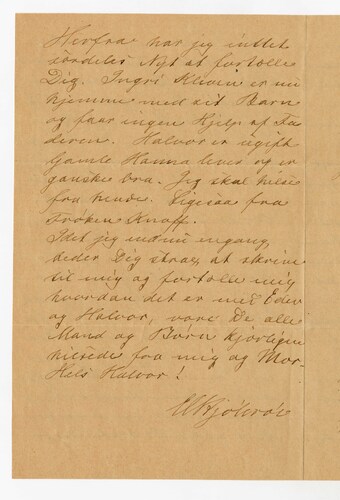 Herfra har jeg intet
særdeles Nyt at fortælle
Dig. Ingri Kleven er nu
hjemme med sit Barn
og faar ingen Hjelp af Fa-
deren. Halvor er ugift
Gamle Hanna lever og er
ganske bra. Jeg skal hilse
fra hende. Ligesaa fra
Frøken Knoff.
Idet jeg endnu engang
beder Dig strax, at skrive
til mig og fortælle mig
hvordan det er med Eder
og Halvor, være De alle
Mand og Børn kjærligen
hilsede fra mig og Mor
Hels Halvor!